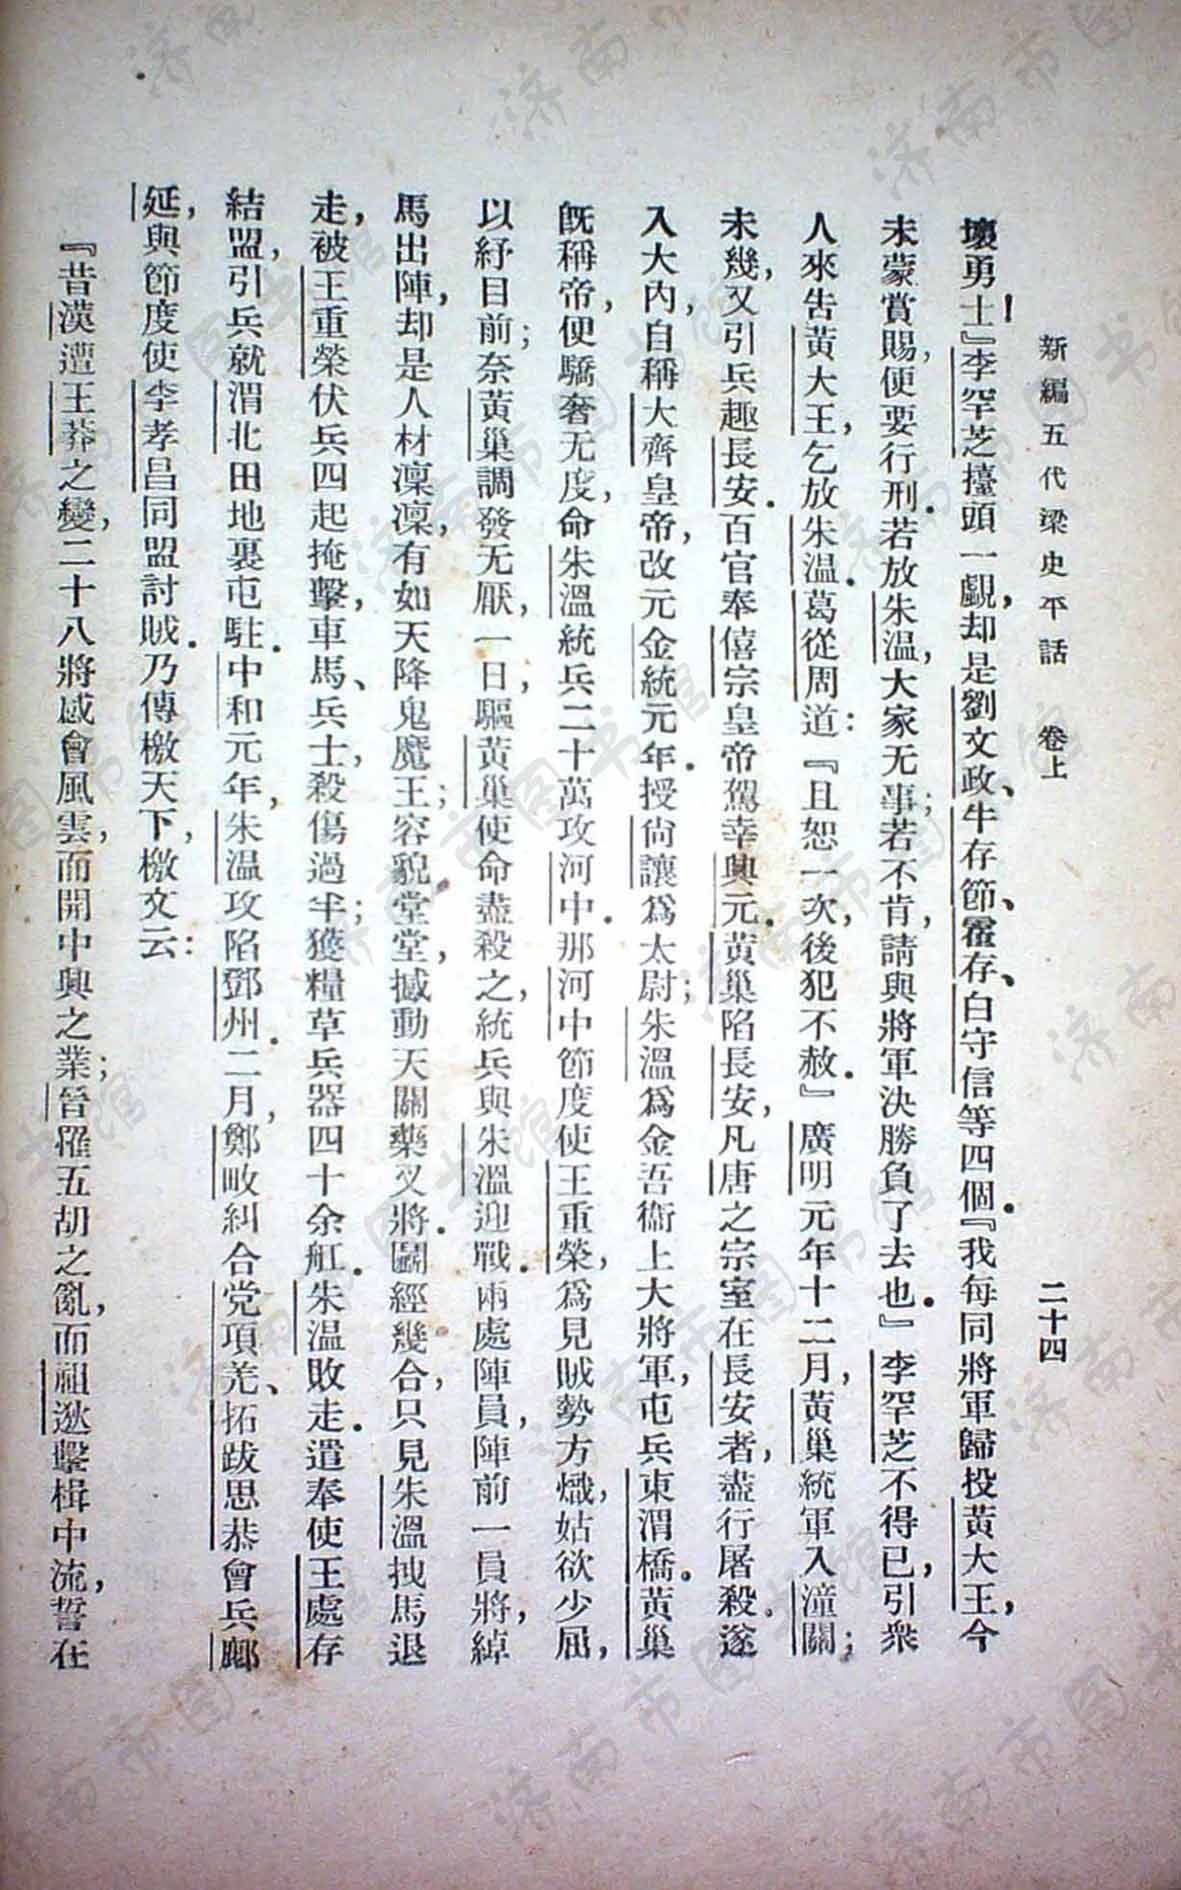 新編五代梁史平話　卷上　二十四
壞勇士！』李罕芝擡頭一覷，却是劉文政、牛存節、霍存、白守信等四個。『我每同將軍歸投黃大王，今
未蒙賞賜，便要行刑。若放朱温，大家无事；若不肯，請與將軍決勝負了去也。』李罕芝不得已，引衆
人來吿黃大王，乞放朱温。葛從周道：『且恕一次，後犯不赦。』廣明元年十二月，黃巢統軍入潼關；
未幾，又引兵趣長安。百官奉僖宗皇帝駕幸興元。黃巢陷長安，凡唐之宗室在長安者，盡行屠殺。遂
入大內，自稱大齊皇帝，改元金統元年。授尙讓爲太尉；朱溫爲金吾衞上大將軍，屯兵東渭橋。黃巢
旣稱帝，便驕奢无度，命朱溫統兵二十萬攻河中。那河中節度使王重榮，爲見賊勢方熾，姑欲少屈，
以紓目前；奈黃巢調發无厭，一日，驅黃巢使命盡殺之，統兵與朱溫迎戰。兩處陣員，陣前一員將，綽
馬出陣，却是人材凜凜，有如天降鬼魔王；容貌堂堂，撼動天關藥叉將。鬭經幾合，只見朱溫拽馬退
走，被王重榮伏兵四起掩擊，車馬、兵士，殺傷過半；獲糧草兵器四十余舡。朱温敗走。遣奉使王處存
結盟，引兵就渭北田地裏屯駐。中和元年，朱温攻陷鄧州。二月，鄭畋糾合党項羌、拓跋思恭會兵鄜
延，與節度使李孝昌同盟討賊。乃傳檄天下，檄文云：
『昔漢遭王莽之變，二十八將感會風雲，而開中興之業；晉罹五胡之亂，而祖逖擊楫中流，誓在